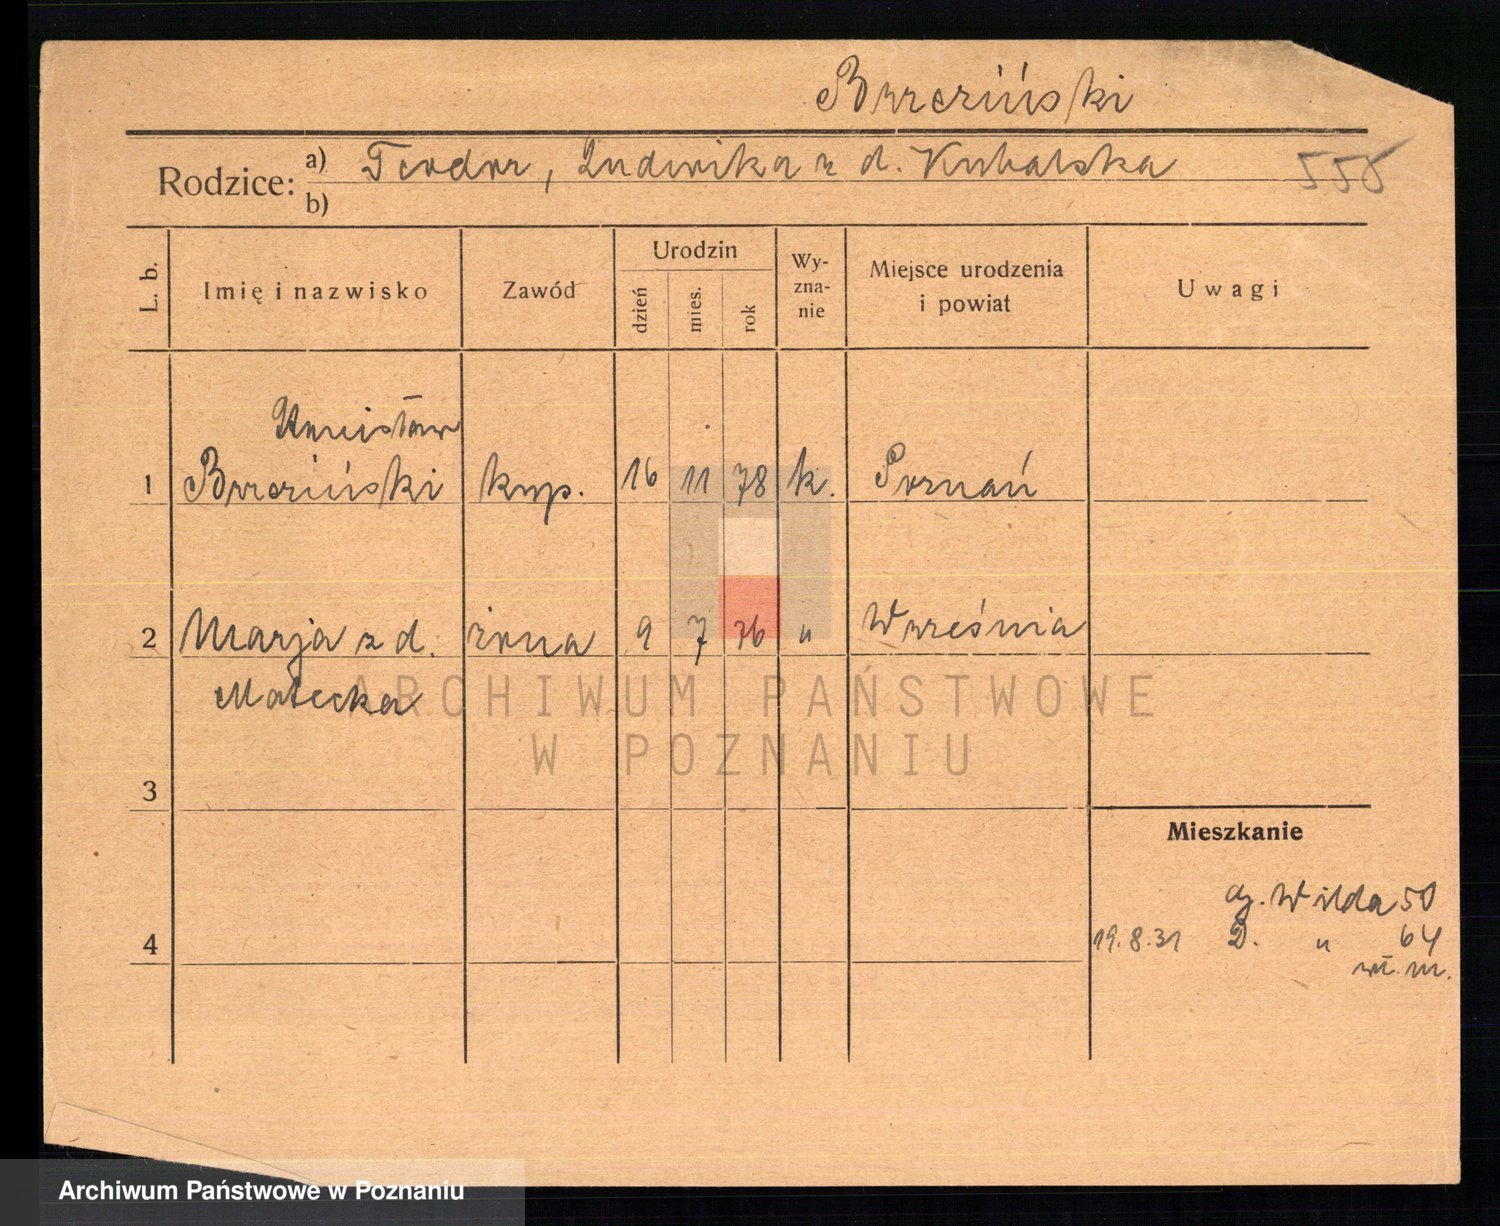 Brzeziński
Rodzice: a) Teodor, Ludwika z d. Kubalska
b)
L. b.
Imię i nazwisko
Zawód
Urodzin
dzień
mies.
rok
Wy-
zna-
nie
Miejsce urodzenia
i powiat
Uwagi
1 Brzeziński kup. 16 11 78 k. Poznań
2 Marja z d. żona 9 7 76 " Września
Małecka
3
Mieszkanie
4
G. Wilda 50
19.8.31 D. " 64
wł. m.
ARCHIWUM PAŃSTWOWE
W POZNANIU
Archiwum Państwowe w Poznaniu